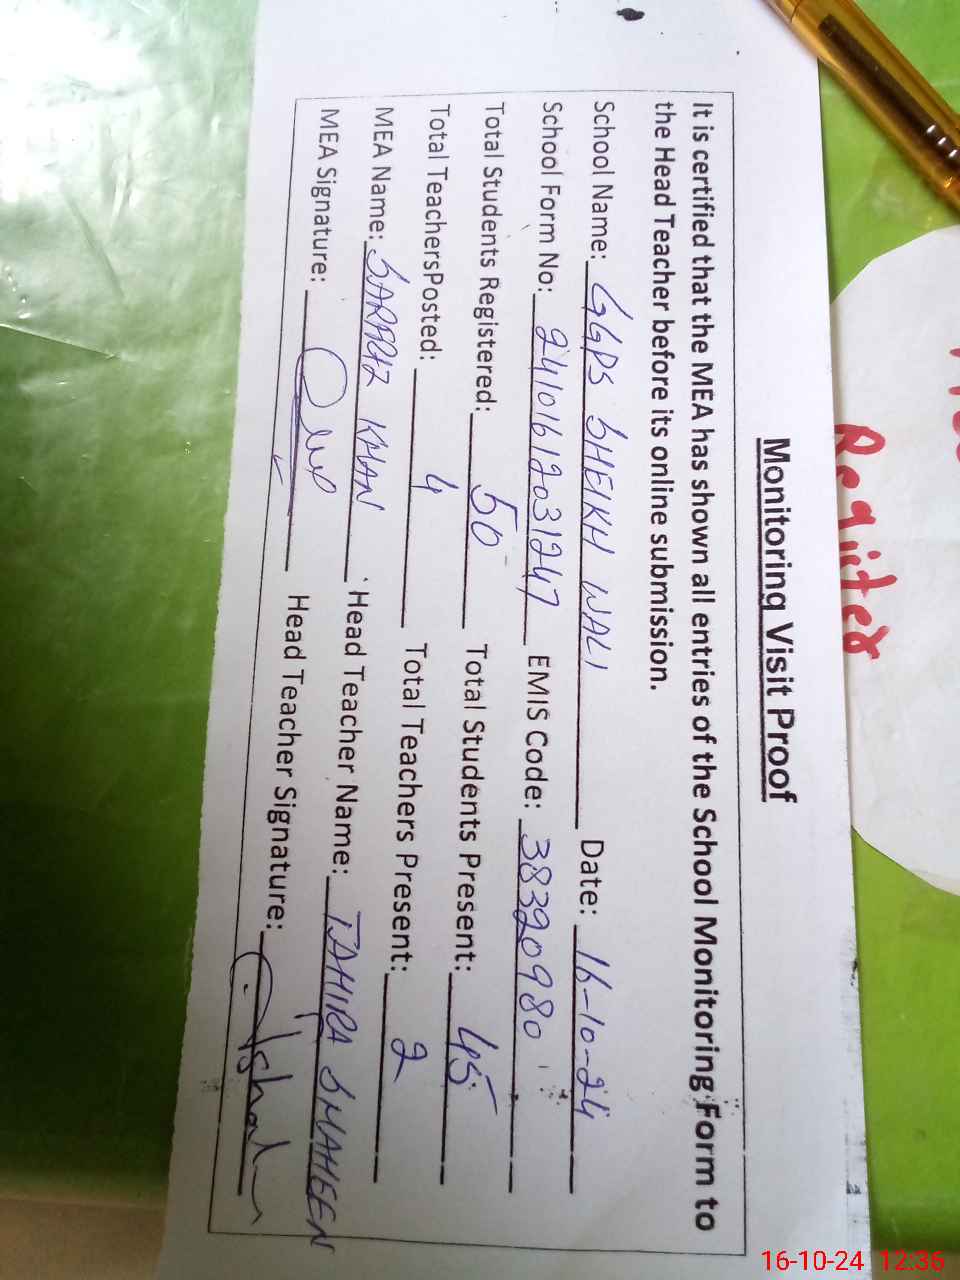 Monitoring Visit Proof
It is certified that the MEA has shown all entries of the School Monitoring Form to
the Head Teacher before its online submission.
School Name: GGPS SHEIKH WALI Date: 16-10-24
School Form No: 24101612031247 EMIS Code: 38320980
Total Students Registered: 50 Total Students Present: 45
Total TeachersPosted: 4 Total Teachers Present: 2
MEA Name: KHAN Head Teacher Name: TAHIRA SHAHEEN
MEA Signature: Head Teacher Signature:
Register
16-10-24 12:36